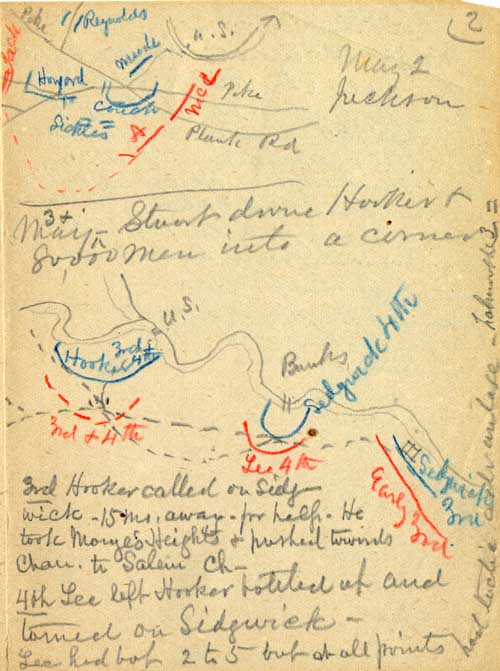 2
Pike
Reynolds
U.S.
Meade
Jack
Howard
Couch
Sickles
A
McL
Pike
Plank Rd
May 2
Jackson
May 3+ - Stuart drove Hooker &
80,000 men into a corner
U.S.
Hooker 3rd + 4th
3rd + 4th
Banks
Sedgwick 4th
Lee 4th
Sedgwick
3rd
Early 3rd
3rd Hooker called on Sedg-
wick - 15 ms. away - for help. He
took Marye's Heights & pushed towards
Chan. to Salem Ch -
4th Lee left Hooker bottled up and
turned on Sedgwick -
Lee had but 2 to 5 but at all points
had